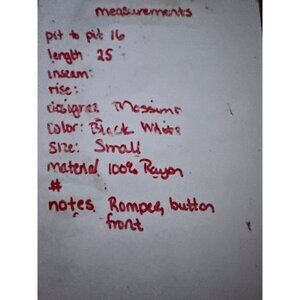 measurements
pit to pit 16
length 25
inseam:
rise:
designer Mossimo
Color: Black White
Size: Small
material 100% Rayon
#
notes Romper, button
front